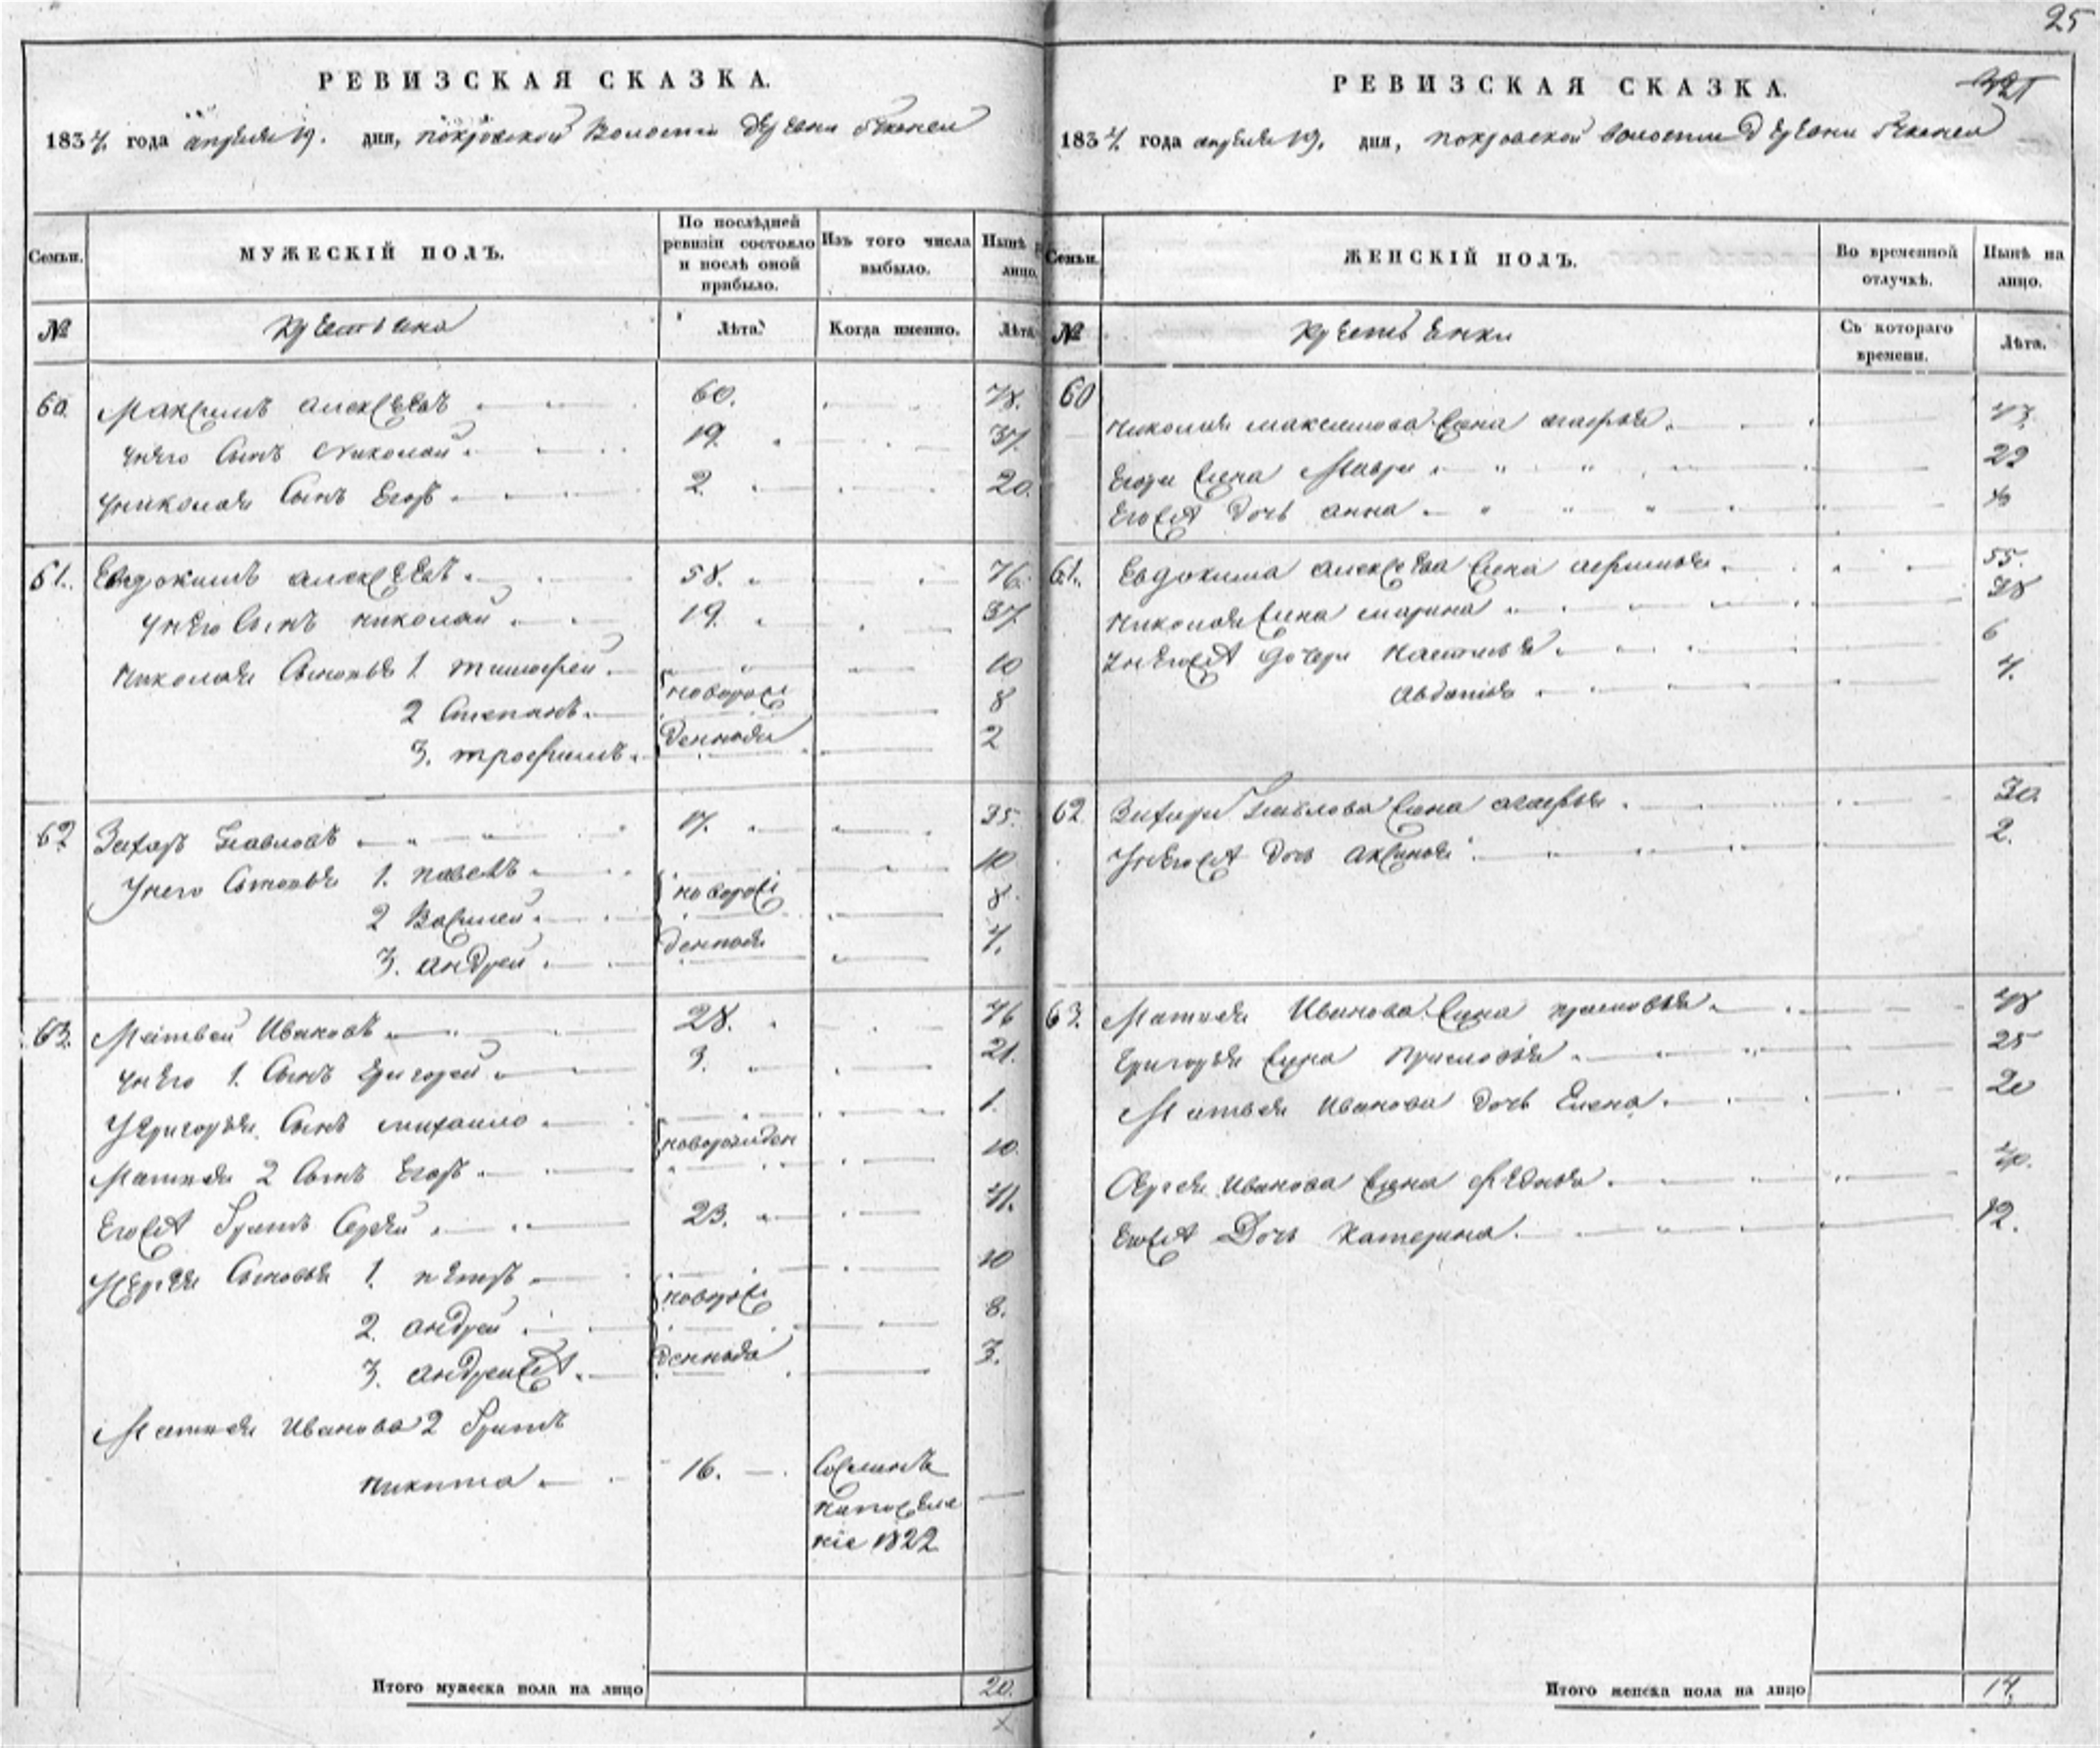 25
РЕВИЗСКАЯ СКАЗКА.
1834 года апреля 19. дня, покровской Волости деревни
Семьи.
МУЖЕСКІЙ ПОЛЪ.
По послѣдней ревизіи состояло и послѣ оной прибыло.
Изъ того числа выбыло.
Нынѣ на лицо.
№
Лѣта.
Когда именно.
Лѣта.
60. Максимъ алексѣевъ 60. 78.
унего Сынъ Николай 19. 37.
униколая Сынъ Егоръ 2. 20.
61. Евдокимъ алексѣевъ 58. 76.
унего Сынъ николай 19. 37.
николая Сыновья 1 тимофей 10
2 Степанъ новорож 8
3. трофимъ денныя 2
62 Захаръ Павловъ 17. 35.
Унего Сыновья 1. павелъ 10
2 Василей новорож 8
3. андрей денныя 4.
63. Матвей Ивановъ 28. 46
унего 1. Сынъ григорей 3. 21.
Угригорья Сынъ михаило 1.
новорожден
Матвея 2 Сынъ Егоръ 10.
Егожъ Братъ Сергей 23. 41.
Усергея Сыновья 1. петръ 10
2. андрей новорож 8.
3. андрей денныя 3.
Матвея Иванова 2 Братъ
никита 16. Сосланъ
на поселе
ніе 1822
Итого мужеска пола на лицо 20.
РЕВИЗСКАЯ СКАЗКА.
1834 года апреля 19. дня, покровской волости деревни
Семьи.
ЖЕНСКІЙ ПОЛЪ.
Во временной отлучкѣ.
Нынѣ на лицо.
№
Съ котораго времени.
Лѣта.
60
николая максимова жена агафья 43
Егора жена Мавра 22
Егожъ дочь анна
61. Евдокима алексеева жена афимья 55.
николая жена марина 38
унегожъ дочери настасья 6
авдотья 4.
62 Захара Павлова жена агафья 30
Унегожъ дочь аксинья 2.
63. Матвея Иванова жена прасковья 48
григорья жена прасковья 25
Матвея Иванова дочь Елена 20
Сергея Иванова жена федосья 40.
Егожъ Дочь катерина 12.
Итого женска пола на лицо 14.